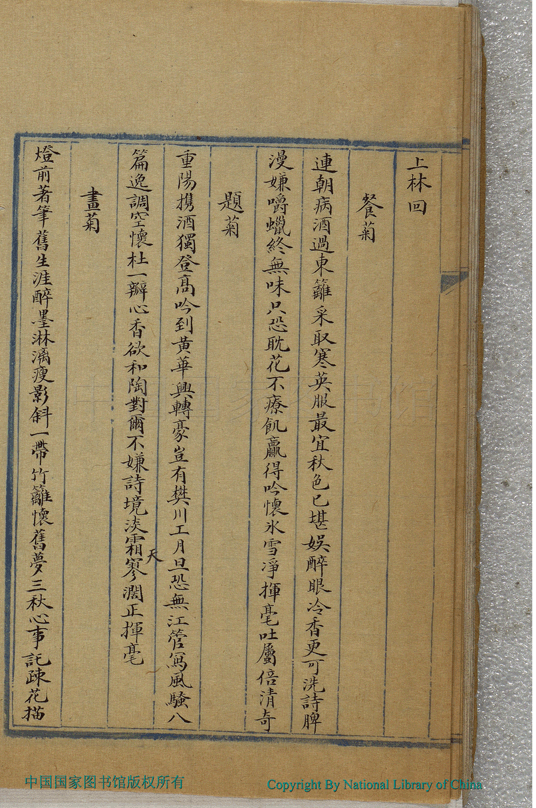 上林回
餐菊
連朝病酒過東籬采取寒英服最宜秋色已堪娛醉眼冷香更可洗詩脾
漫嫌嚼蠟終無味只恐耽花不療飢贏得吟懷氷雪淨揮毫吐屬倍清奇
題菊
重陽携酒獨登高吟到黃華興轉豪豈有樊川工月旦恐無江管寫風騷八
篇逸調空懷杜一瓣心香欲和陶對爾不嫌詩境淡霜寥天濶正揮毫
畫菊
燈前著筆舊生涯醉墨淋漓瘦影斜一帶竹籬懷舊夢三秋心事記疎花描
中国国家图书馆版权所有
Copyright By National Library of China